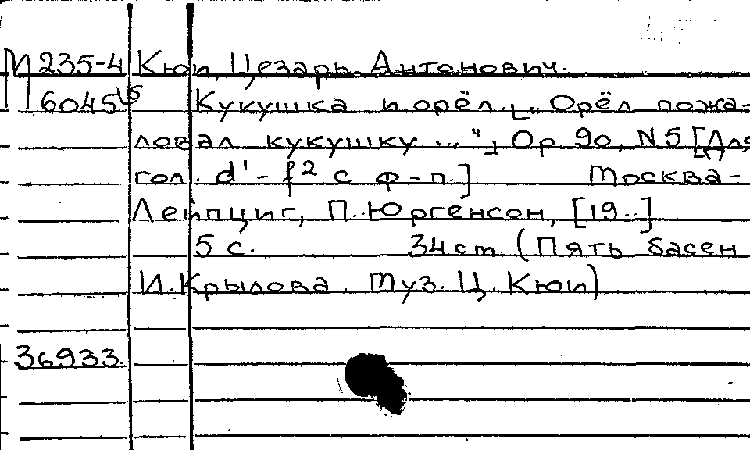 М 235-4 Кюи, Цезарь Антонович.
6045 Кукушка и орёл. „Орёл пожа-
ловал кукушку ..."; Op. 90, N5 [Для
гол. d¹ - f² с ф-п.] Москва-
Лейпциг, П. Юргенсон, [19..]
5 с. 34 cm (Пять басен
И. Крылова. Муз. Ц. Кюи)
36933